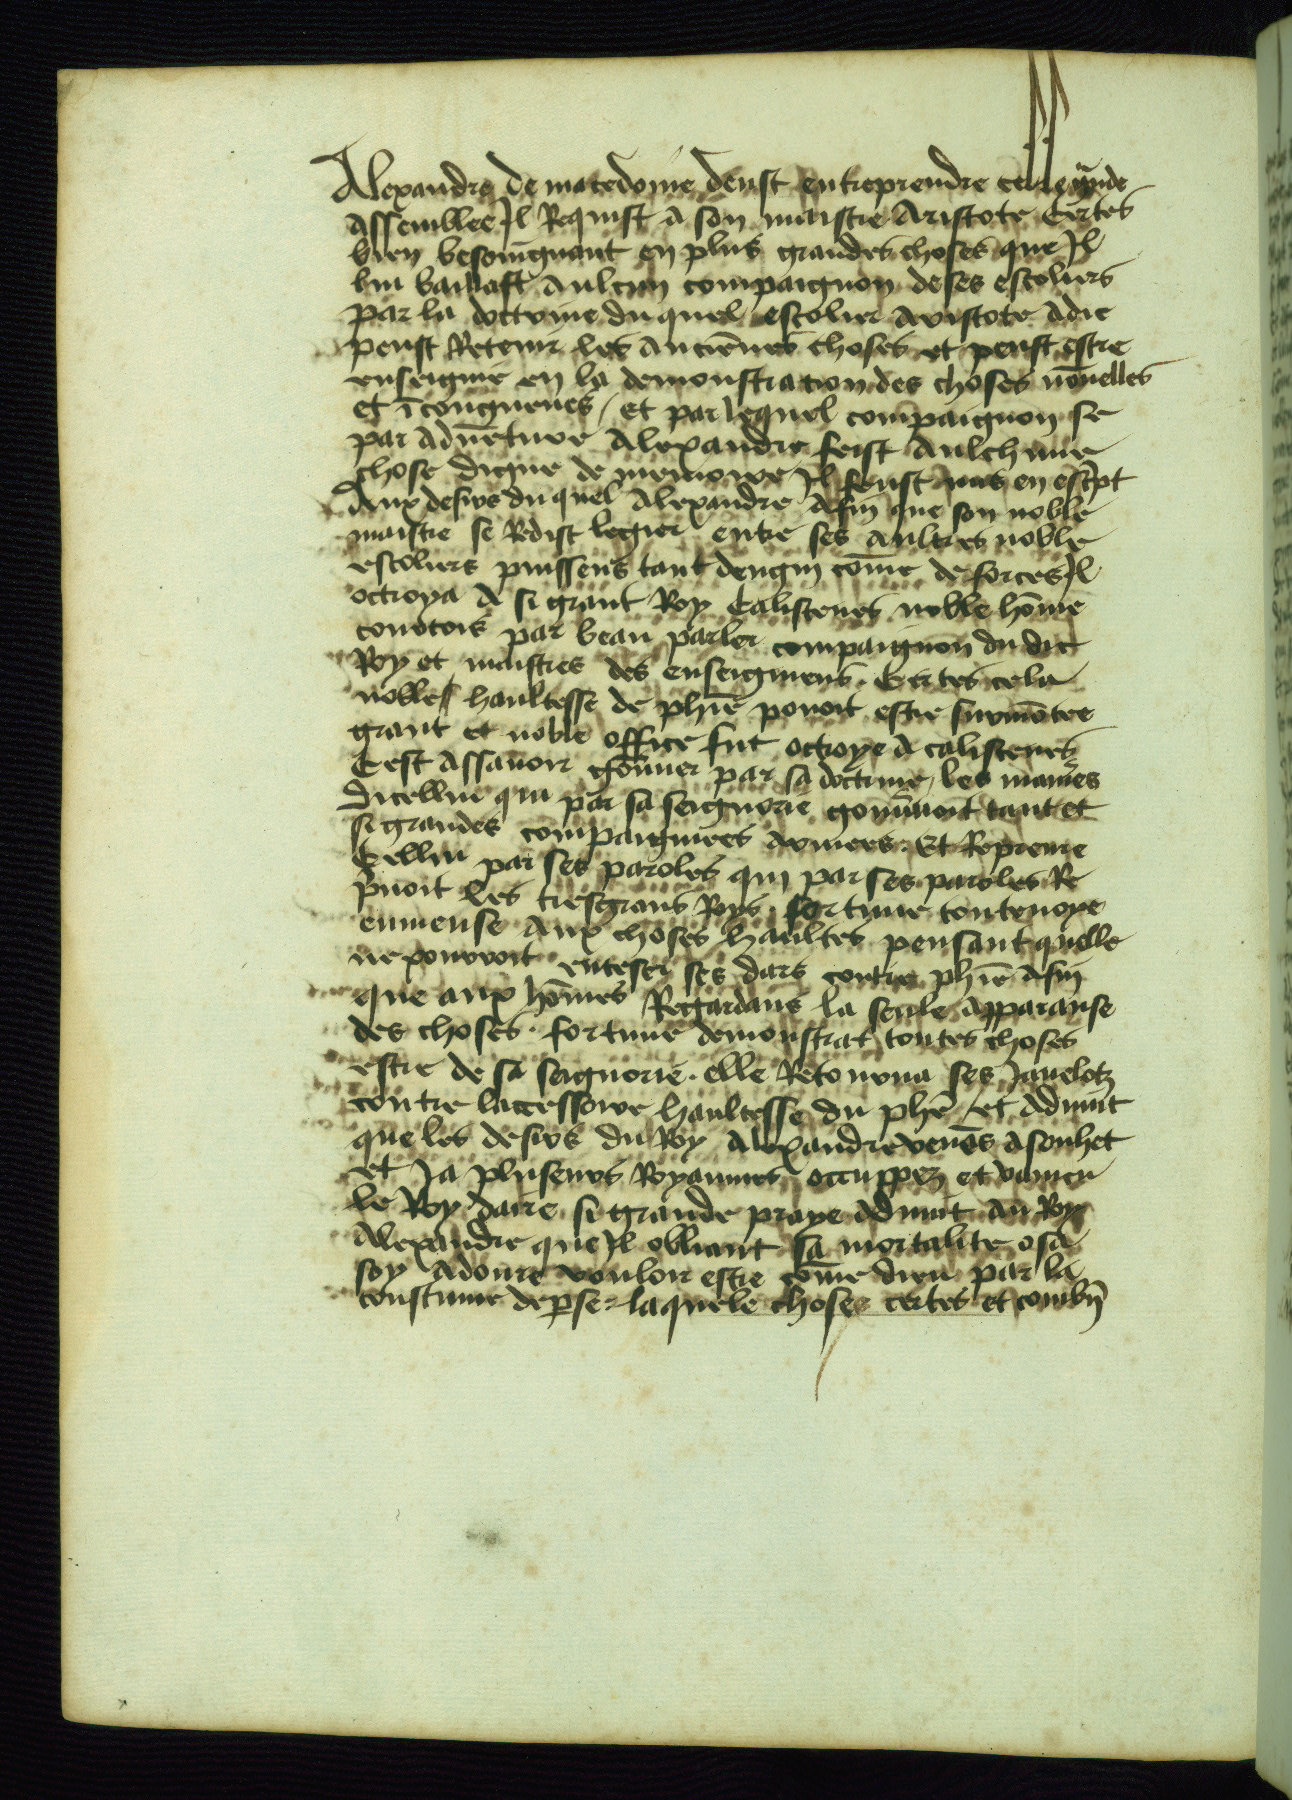 Alexandre de macedoine deust entreprendre celle gr̃nde
assemblee Jl Requist a son maistre Aristote Certes
bien besoingnant en plus grandes choses que Jl
luy baillast aulcun compaignon de ses escoliers
par la doctrine du quel escolier aristote adic
peust Retenir les anciēnes choses et peust estre
enseigne en la demonstracion des choses nouuelles
et īcongneues / et par lequel compaignon se
par aduēture Alexandre feist aulchune
chose digne de memoire Jl feust mis en escr̃pt
Aux desirs du quel Alexandre Afin que son noble
maistre se Redist legier entre ses aultres noble
escoliers puissens tant dengin cōme de forces Jl
octroya a si grant Roy Calistenes noble hōme
couotois par beau parler compaignon du dit
Roy et maistres des enseignemens. Certes cela
noble haultesse de phīe pouoit estre surmōtee
grant et noble office fut octroye a calistenes
Cest assauoir gouṽner par sa doctrine / les manieres
Dicelluy qui par sa seignorie gouuernoit tant et
si grandes compaignies armees. Et Reprenre
Celluy par ses paroles qui par ses paroles Re
p̃noit les tresgrans Roys. fortune toutenoye
enuieuse aux choses haultes pensant quelle
ne pouuoit enteser ses dars contre phīe afin
que aux hōmes Regardans la seule apparanse
des choses. fortune demonstrat toutes choses
estre de sa seignorie. elle Retourna ses Jauelotz
contre laccessoire haultesse du phē / et aduint
que les desirs du Roy Alexandre venoēs a souhet
et Ja pluseurs Royaumes occuppez et vaincu
le Roy daire si grande praye aduint au Roy
Alexandre que Jl obliant sa mortalite osa
soy adoure vouloir estre cōme dieu par la
coustume de p̃se laquele chose certes et combñ